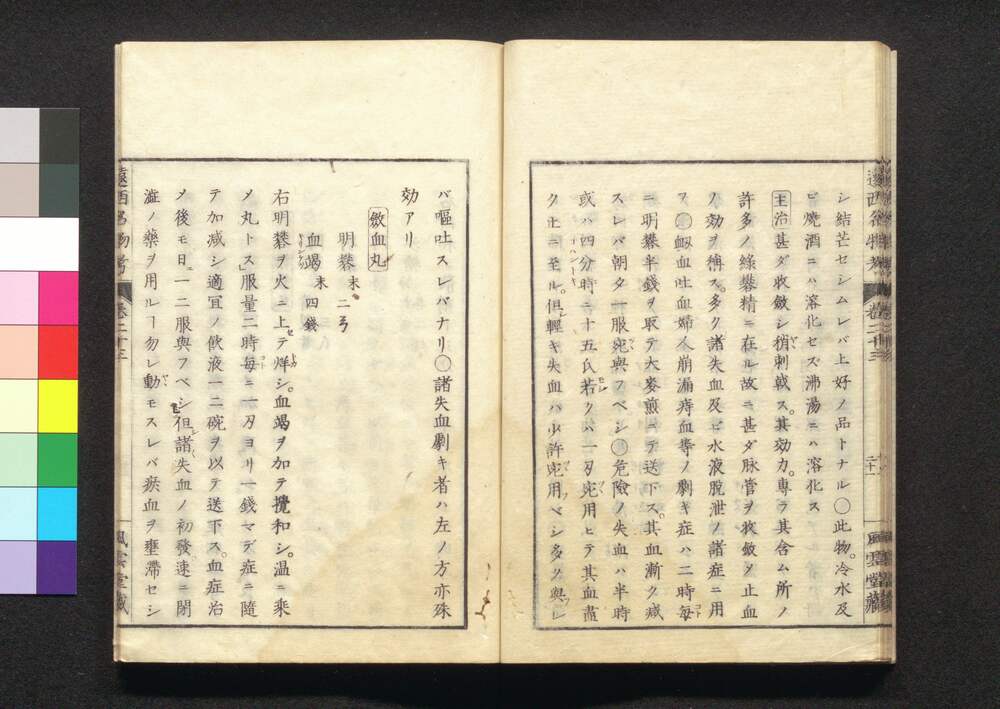 シ結芒セシムレバ上好ノ品トナル○此物。冷水及
ビ焼酒ニハ溶化セズ沸湯ニハ溶化ス
主治甚ダ收斂シ稍刺戟ス。其効力。專ラ其含ム所ノ
許多ノ綠礬精ニ在ル故ニ甚ダ脉管ヲ收斂シメ止血
ノ効ヲ得ス。多ク諸失血及ビ水液脫泄ノ諸症ニ用
ス○衂血吐血婦人崩漏痔血等ノ劇キ症ハ二時每
ニ明礬半錢ヲ取テ大麥煎ニテ送下ス。其血漸ク減
スレバ朝夕一服宛與フベシ○危險ノ失血ハ半時
或ハ四分時ニ十五氏若クハ一刄宛用ヒテ其血盡
ク止ニ至ル。但輕キ失血ハ少許宛用ベシ多ク與レ
遠西名物考
卷二十三
風雲堂藏
バ嘔吐スレバナリ○諸失血劇キ者ハ左ノ方亦殊
効アリ
斂血丸
明礬末二弓
血竭末四錢
右明礬ヲ火ニ上セテ烊シ。血竭ヲ加テ攪和シ。溫ニ乘
メ丸トス」服量二時每ニ一刄ヨリ一錢マデ症ニ隨
テ加減シ適宜ノ飮液一二碗ヲ以テ送下ス。血症治
メ後モ日ニ一二服與フベシ但諸失血ノ初發速ニ閉
澁ノ藥ヲ用ルヿ勿レ動モスレバ瘀血ヲ壅滯セシ
遠西名物考
卷二十三
風雲堂藏